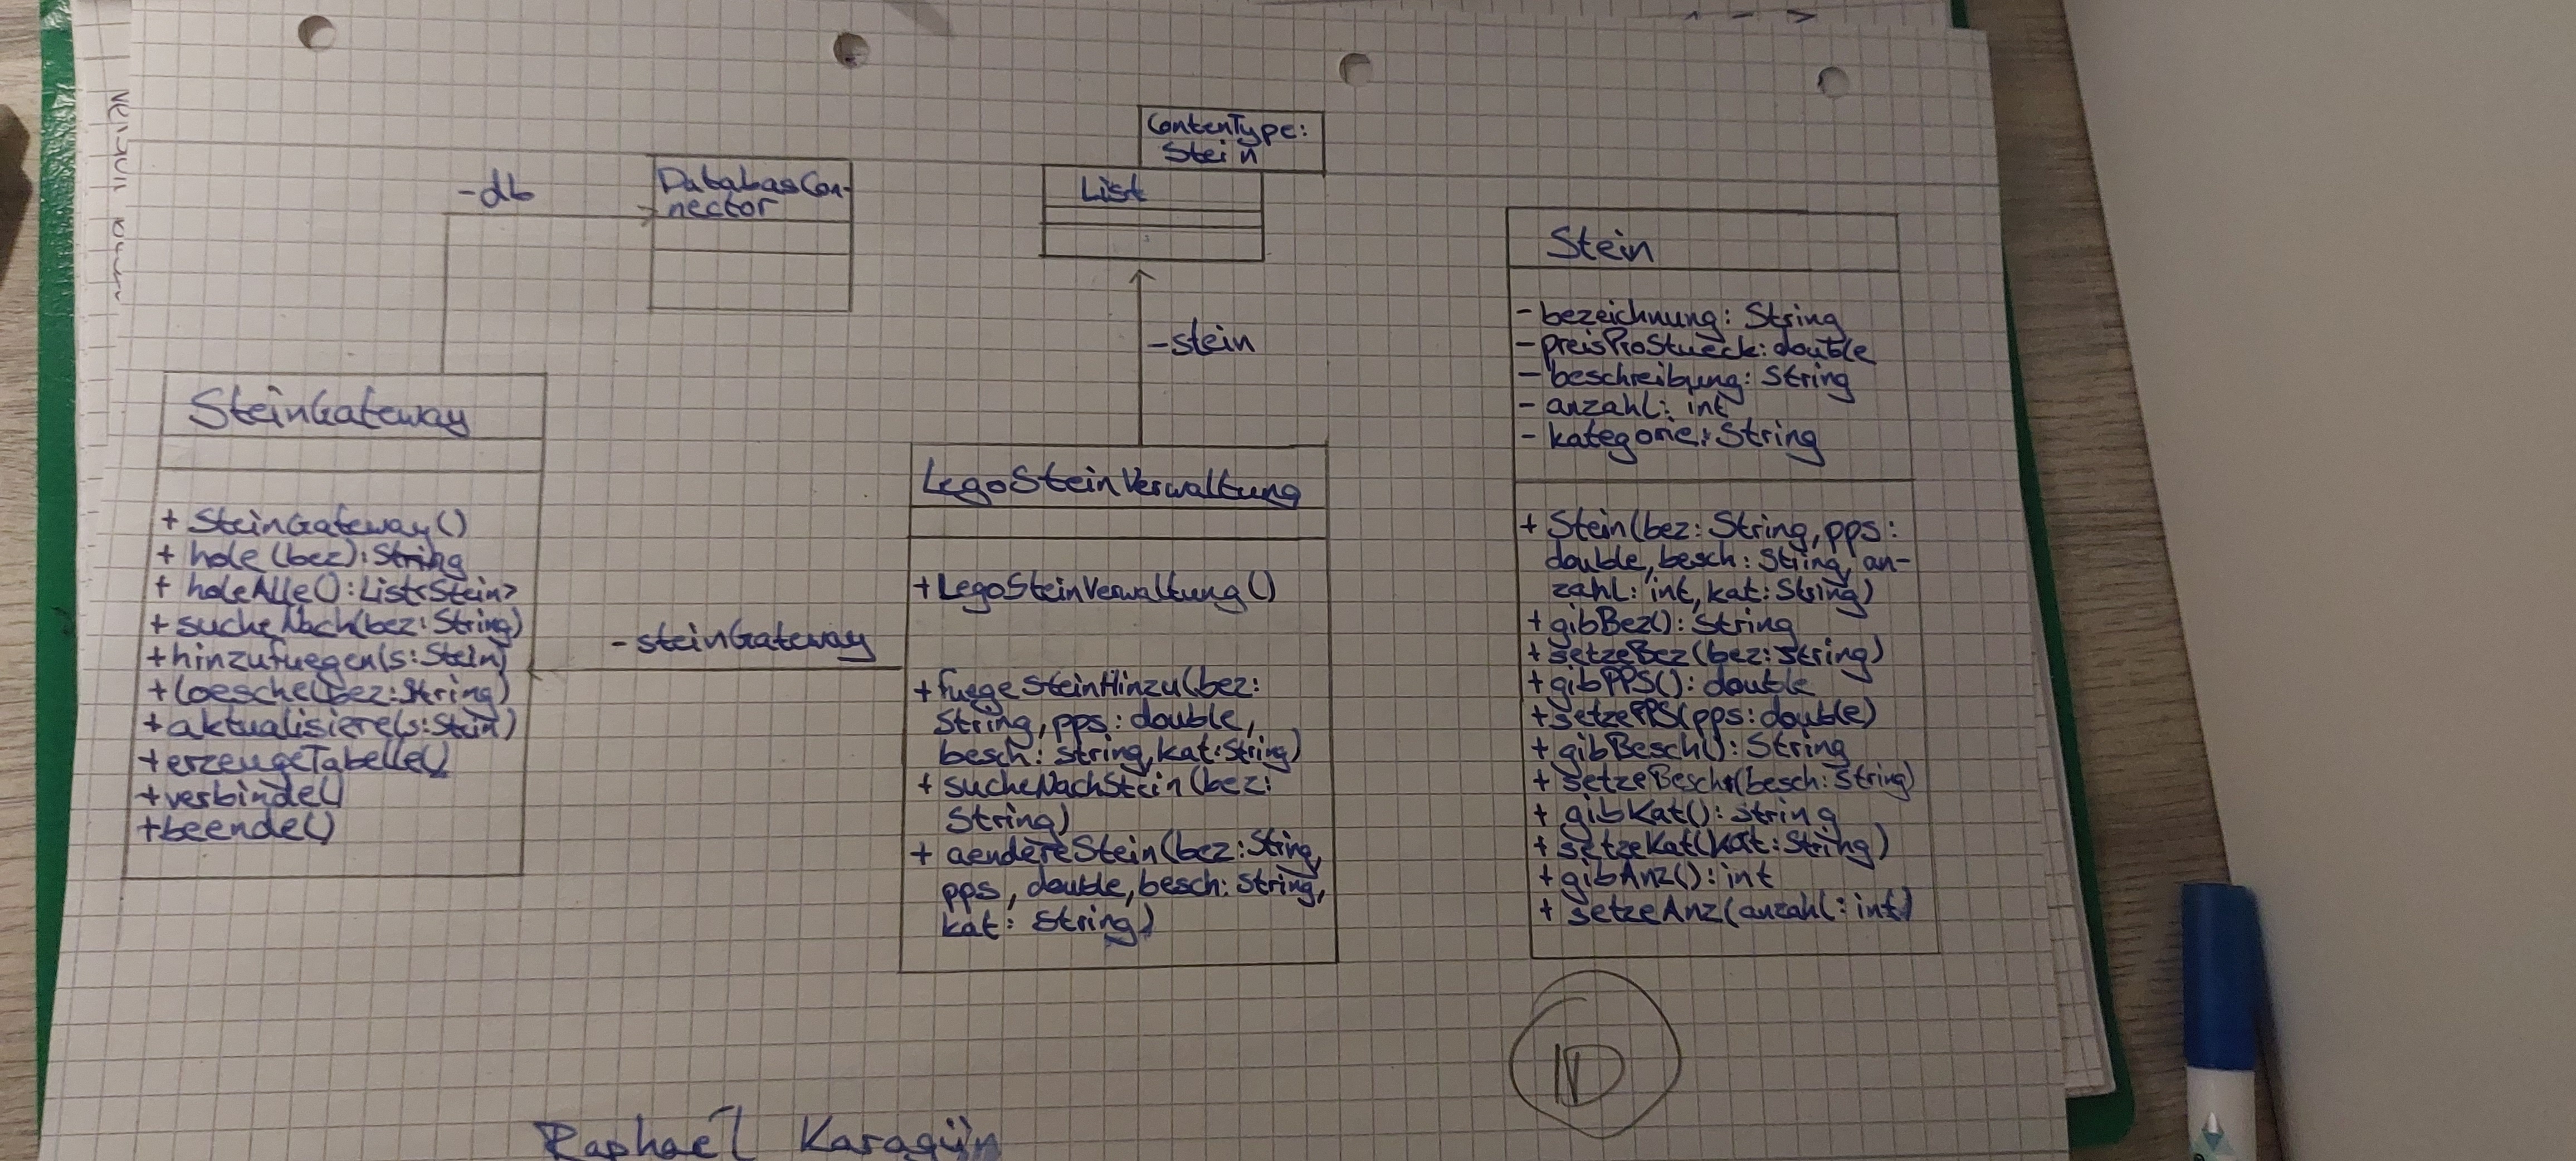 SteinGateway
+ SteinGateway()
+ hole(bez): String
+ holeAlle(): List<Stein>
+ sucheNach(bez: String)
+ hinzufuegen(s: Stein)
+ loesche(bez: String)
+ aktualisiere(s: Stein)
+ erzeugeTabelle()
+ verbinde()
+ beende()
- db
DatabasCon-
nector
- steinGateway
LegoSteinVerwaltung
+ LegoSteinVerwaltung()
+ fuegeSteinHinzu(bez:
String, pps: double,
besch: String, kat: String)
+ sucheNachStein(bez:
String)
+ aendereStein(bez: String,
pps, double, besch: String,
kat: String)
- stein
ContentType:
Stein
Liste
Stein
- bezeichnung: String
- preisProStueck: double
- beschreibung: String
- anzahl: int
- kategorie: String
+ Stein(bez: String, pps:
double, besch: String, an-
zahl: int, kat: String)
+ gibBez(): String
+ setzeBez(bez: String)
+ gibPPS(): double
+ setzePPS(pps: double)
+ gibBesch(): String
+ setzeBesch(besch: String)
+ gibKat(): String
+ setzeKat(kat: String)
+ gibAnz(): int
+ setzeAnz(anzahl: int)
Raphael Karagün